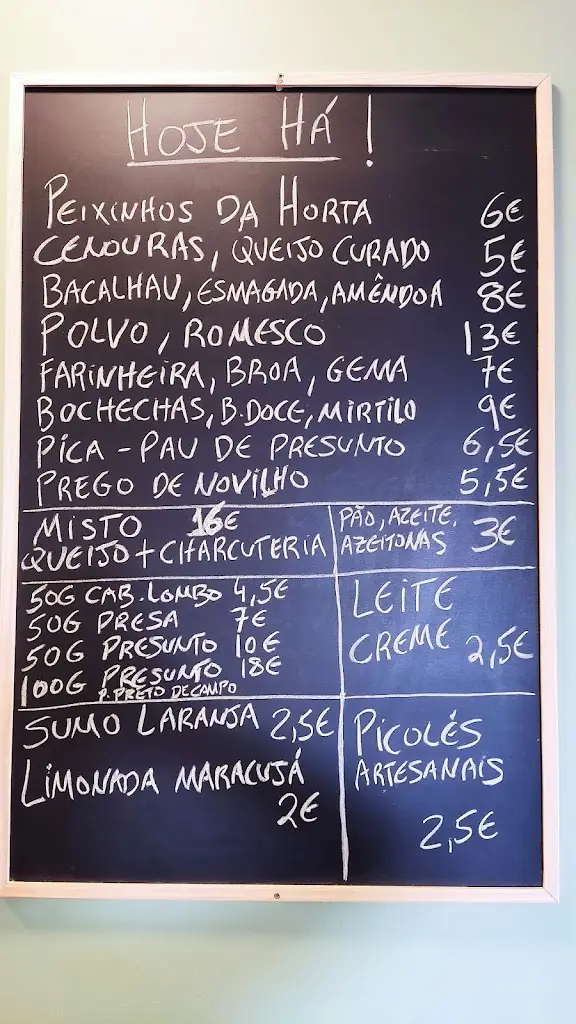 HOJE HÁ!
PEIXINHOS DA HORTA 6€
CENOURAS, QUEIJO CURADO 5€
BACALHAU, ESMAGADA, AMÊNDOA 8€
POLVO, ROMESCO 13€
FARINHEIRA, BROA, GEMA 7€
BOCHECHAS, B.DOCE, MIRTILO 9€
PICA-PAU DE PRESUNTO 6,5€
PREGO DE NOVILHO 5,5€
MISTO 16€
QUEIJO + CHARCUTERIA
PÃO, AZEITE,
AZEITONAS 3€
50G CAB. LOMBO 4,5€
50G PRESA 7€
50G PRESUNTO 10€
100G PRESUNTO 18€
P. PRETO DE CAMPO
LEITE
CREME 2,5€
SUMO LARANJA 2,5€
LIMONADA MARACUJÁ
2€
PICOLÉS
ARTESANAIS
2,5€